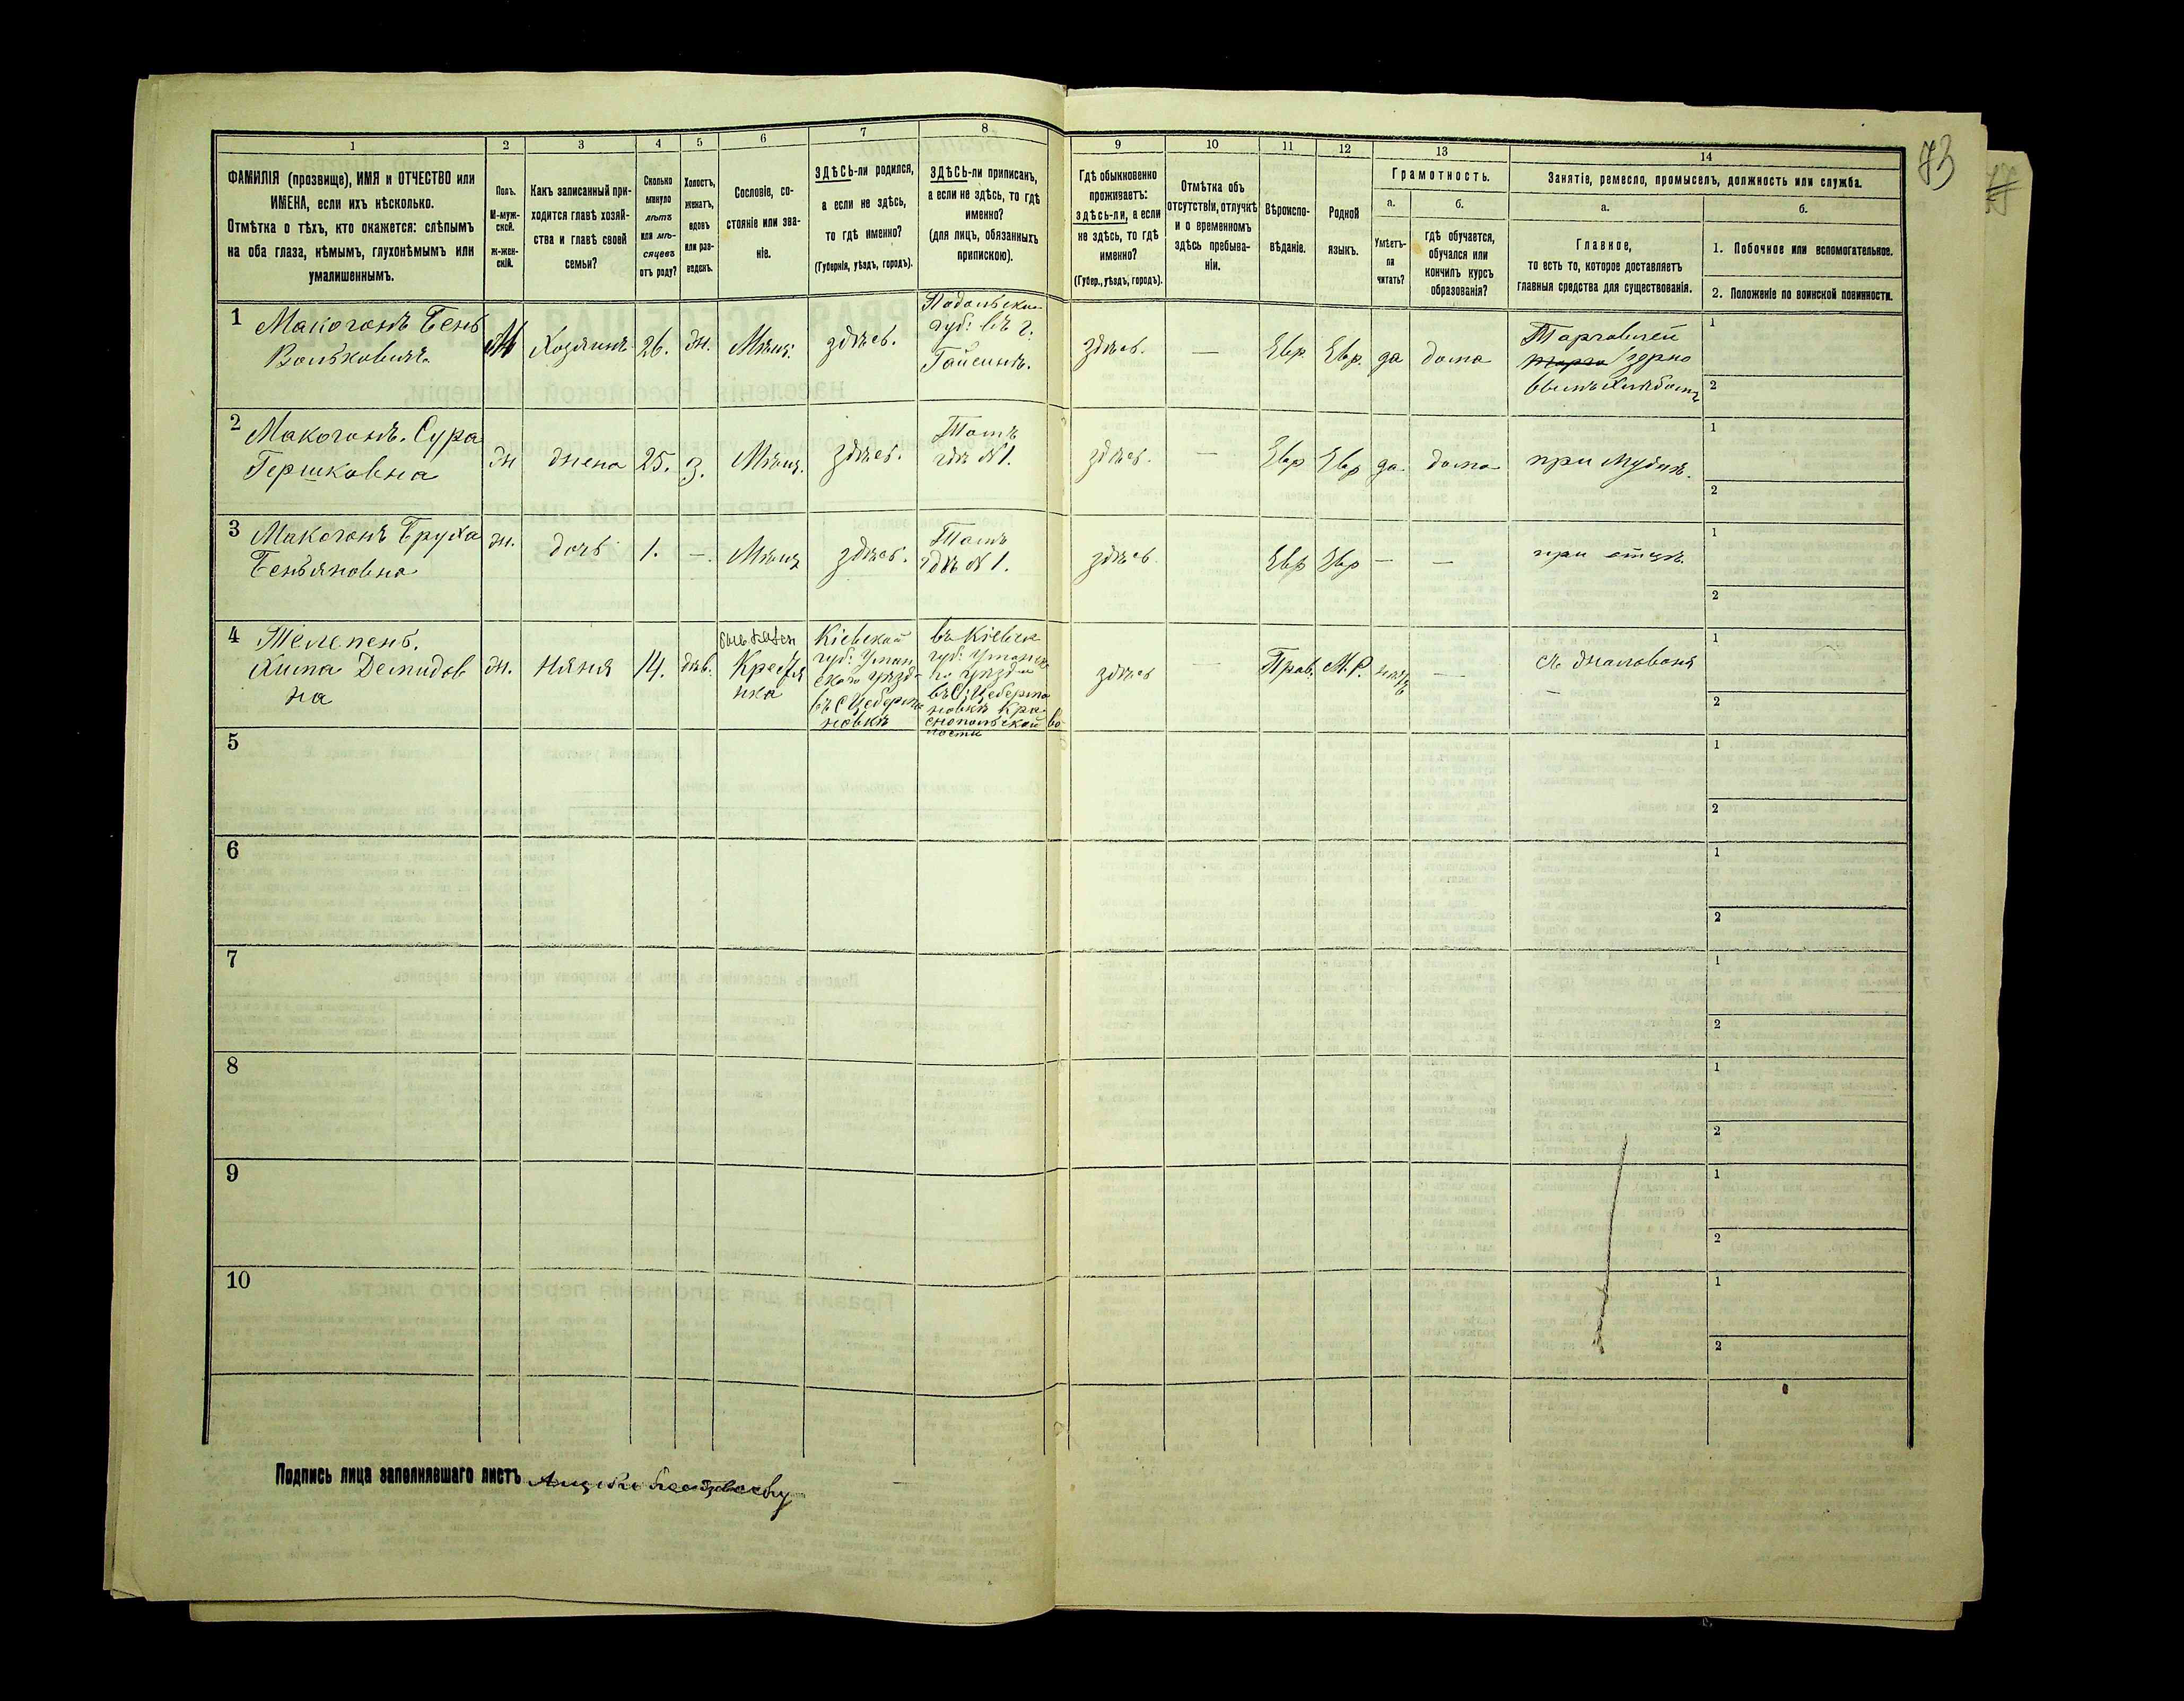 73
1
2
3
4
5
6
7
8
9
10
11
12
13
14
ФАМИЛІЯ (прозвище), ИМЯ и ОТЧЕСТВО или
ИМЕНА, если ихъ нѣсколько.
Отмѣтка о тѣхъ, кто окажется: слѣпымъ
на оба глаза, нѣмымъ, глухонѣмымъ или
умалишеннымъ.
Полъ.
М-муж-
ской.
ж-жен-
скій.
Какъ записанный при-
ходится главѣ хозяй-
ства и главѣ своей
семьи?
Сколько
минуло
лѣтъ
или мѣ-
сяцевъ
отъ роду?
Холостъ,
женатъ,
вдовъ
или раз-
веденъ.
Сословіе, со-
стояніе или зва-
ніе.
ЗДѢСЬ-ли родился,
а если не здѣсь,
то гдѣ именно?
(Губернія, уѣздъ, городъ).
ЗДѢСЬ-ли приписанъ,
а если не здѣсь, то гдѣ
именно?
(для лицъ, обязанныхъ
припискою).
Гдѣ обыкновенно
проживаетъ:
здѣсь-ли, а если
не здѣсь, то гдѣ
именно?
(Губер., уѣздъ, городъ).
Отмѣтка объ
отсутствіи, отлучкѣ
и о временномъ
здѣсь пребыва-
ніи.
Вѣроиспо-
вѣданіе.
Родной
языкъ.
Грамотность.
а.
Умѣетъ-
ли
читать?
б.
гдѣ обучается,
обучался или
кончилъ курсъ
образованія?
Занятіе, ремесло, промыселъ, должность или служба.
а.
Главное,
то есть то, которое доставляетъ
главныя средства для существованія.
б.
1. Побочное или вспомогательное.
2. Положеніе по воинской повинности.
1
Макогонъ Бень
Вольковичъ
М
Хозяинъ
26.
ж.
Мѣщ.
здѣсь.
Подольская
губ. въ г.
Гайсинѣ.
здѣсь.
—
Евр.
Евр.
да
дома
Торговлей
зерно
вымъ хлѣбомъ
1
2
2
Макогонъ. Сура
Гершковна
ж
жена
25.
з.
Мѣщ.
здѣсь.
Тамъ
гдѣ №1.
здѣсь.
—
Евр
Евр
да
дома
при мужѣ.
1
2
3
Макогонъ Бруха
Беньяновна
ж.
дочь
1.
—
Мѣщ
здѣсь.
Тамъ
гдѣ №1.
здѣсь
Евр
Евр
—
—
при отцѣ.
1
2
4
Телепень.
Хима Демидов
на
ж.
няня
14.
дѣв.
Крестья
нка
Кіевской
губ. Уман
скаго уѣзда
въ С Цеберма
новкѣ
въ Кіевск
губ. Уманска
го уѣзда
въ С. Цеберма
новкѣ Кра
снопольской во
лости
здѣсь
—
Прав.
М.Р.
нѣтъ
—
1
2
5
1
2
6
1
2
7
1
2
8
1
2
9
1
2
10
1
2
Подпись лица заполнявшаго листъ